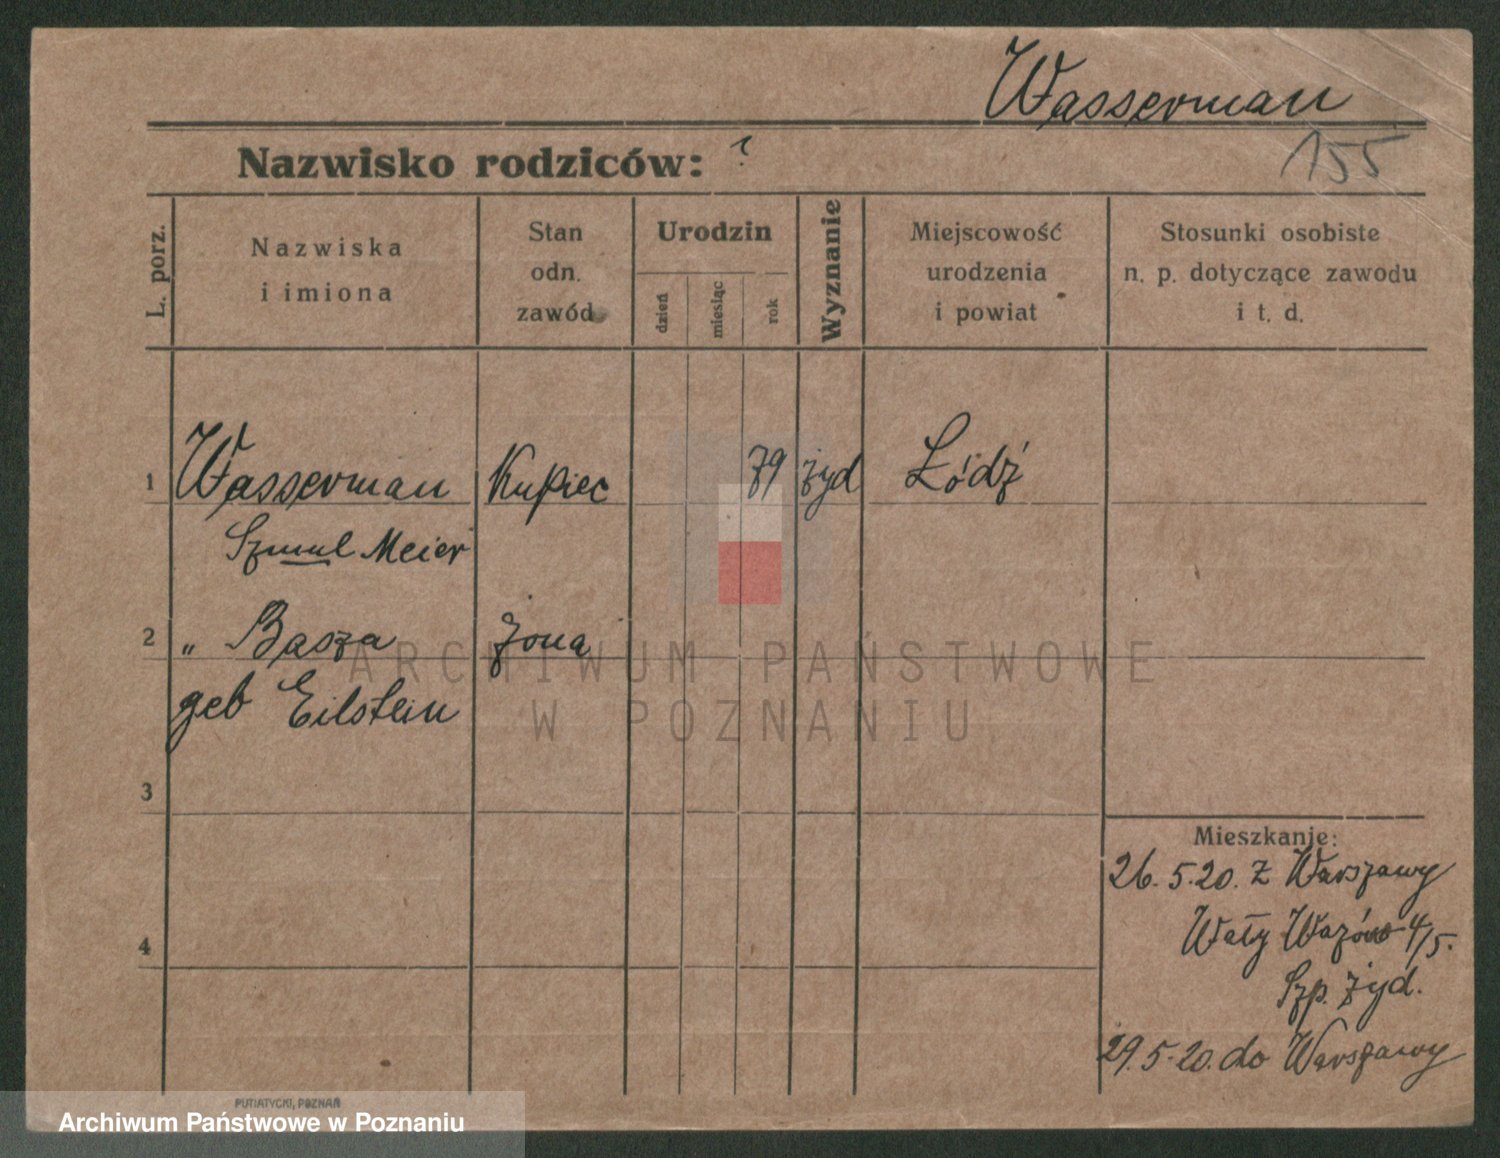 Wasserman
155
Nazwisko rodziców: ?
L. porz.
Nazwiska
i imiona
Stan
odn.
zawód
Urodzin
dzień
miesiąc
rok
Wyznanie
Miejscowość
urodzenia
i powiat
Stosunki osobiste
n. p. dotyczące zawodu
i t. d.
1 Wasserman Kupiec 79 żyd Łódź
Szmul Meier
2 „ Basza żona
geb Eilstein
3
4
Mieszkanie:
26.5.20. z Warszawy
Wały Wazów 4/5.
Szp. żyd.
29.5-20. do Warszawy
PUTIATYCKI, POZNAŃ
ARCHIWUM PAŃSTWOWE
W POZNANIU
Archiwum Państwowe w Poznaniu